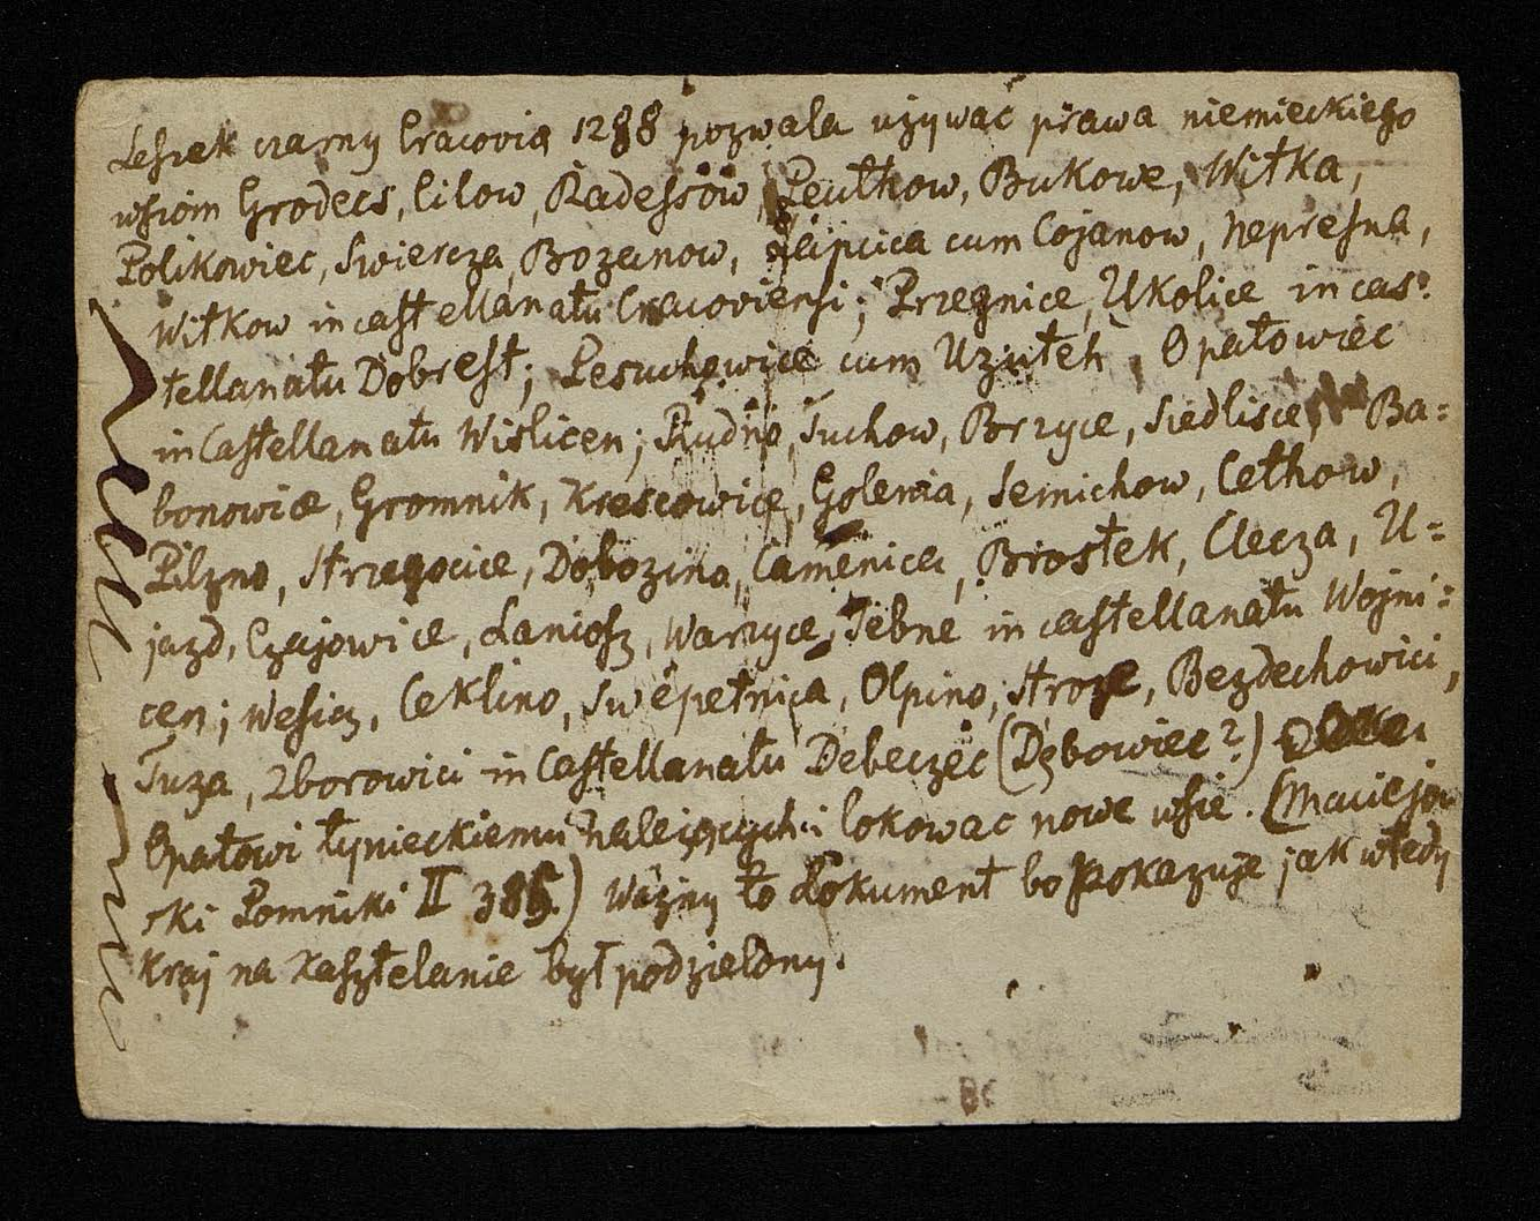 Leszek czarny Cracovia 1288 pozwala używać prawa niemieckiego
wsiom Grodecs, Cilow, Radessow, Peutkow, Bukowe, Witka,
Polikowiec, Swiercza, Bozanow, Lipcica cum Cojanow, Nepresna,
Witkow in castellanatu Cracoviensi; Przegnice, Ukolice in cas:
tellanatu Dobrest; Pesuchowice cum Uzuteh, Opatowiec
in Castellanatu Wislicen; Rudno, Tuchow, Borzyce, Siedlisce, Ba=
bonowice, Gromnik, Krescowice, Golenia, Semichow, Cethow,
Pilzno, Strzegocice, Dobozino, Camenica, Brostek, Clecza, U=
jazd, Czajowice, Laniosz, Warzyce, Jebne in castellanatu Wojni=
cen; Wesicz, Ceklino, Swepetnica, Olpino, Stroze, Bezdechowici,
Tuza, Zborowici in Castellanatu Debeczec (Dębowiec?)
Opatowi tynieckiemu należących i lokowac nowe wsie. (Maciejow
ski Pomniki II 385.) Ważny to dokument bo pokazuje jak wtedy
kraj na kasztelanie był podzielony.